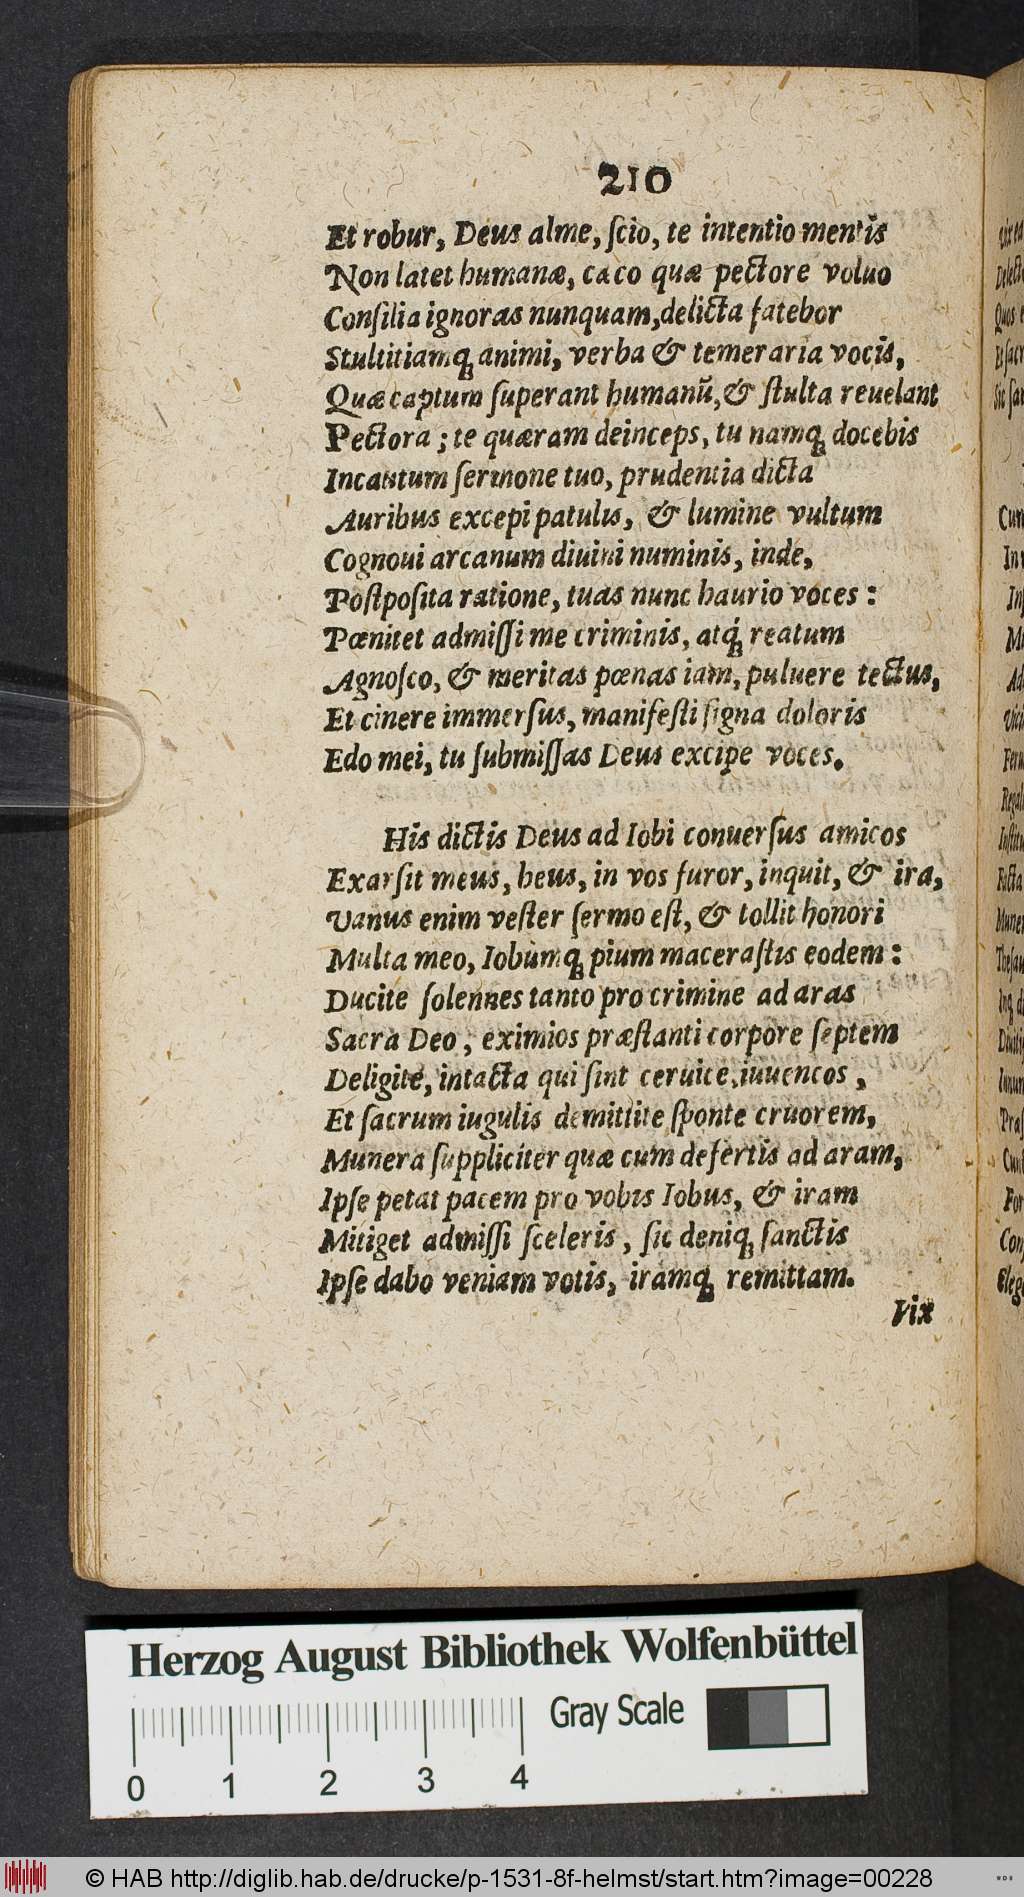 210
Et robur, Deus alme, ſcio, te intentio mentis
Non latet humanæ, cæco quæ pectore voluo
Conſilia ignoras nunquam, delicta fatebor
Stultitiamq́ animi, verba & temeraria vocis,
Quæ captum ſuperant humanū, & ſtulta reuelant
Pectora; te quæram deinceps, tu namq́ docebis
Incautum ſermone tuo, prudentia dicta
Auribus excepi patulis, & lumine vultum
Cognoui arcanum diuini numinis, inde,
Poſtpoſita ratione, tuas nunc haurio voces:
Pœnitet admiſſi me criminis, atq́ reatum
Agnoſco, & meritas pœnas iam, puluere tectus,
Et cinere immerſus, manifeſti ſigna doloris
Edo mei, tu ſubmiſſas Deus excipe voces.
His dictis Deus ad Iobi conuerſus amicos
Exarſit meus, heus, in vos furor, inquit, & ira,
Vanus enim veſter ſermo eſt, & tollit honori
Multa meo, Iobumq́ pium maceraſtis eodem:
Ducite ſolennes tanto pro crimine ad aras
Sacra Deo, eximios præſtanti corpore ſeptem
Deligite, intacta qui ſint ceruice, iuuencos,
Et ſacrum iugulis demittite ſponte cruorem,
Munera ſuppliciter quæ cum defertis ad aram,
Ipſe petat pacem pro vobis Iobus, & iram
Mitiget admiſſi ſceleris, ſic deniq́ ſanctis
Ipſe dabo veniam votis, iramq́ remittam.
Vix
Herzog August Bibliothek Wolfenbüttel
Gray Scale
0 1 2 3 4
© HAB http://diglib.hab.de/drucke/p-1531-8f-helmst/start.htm?image=00228